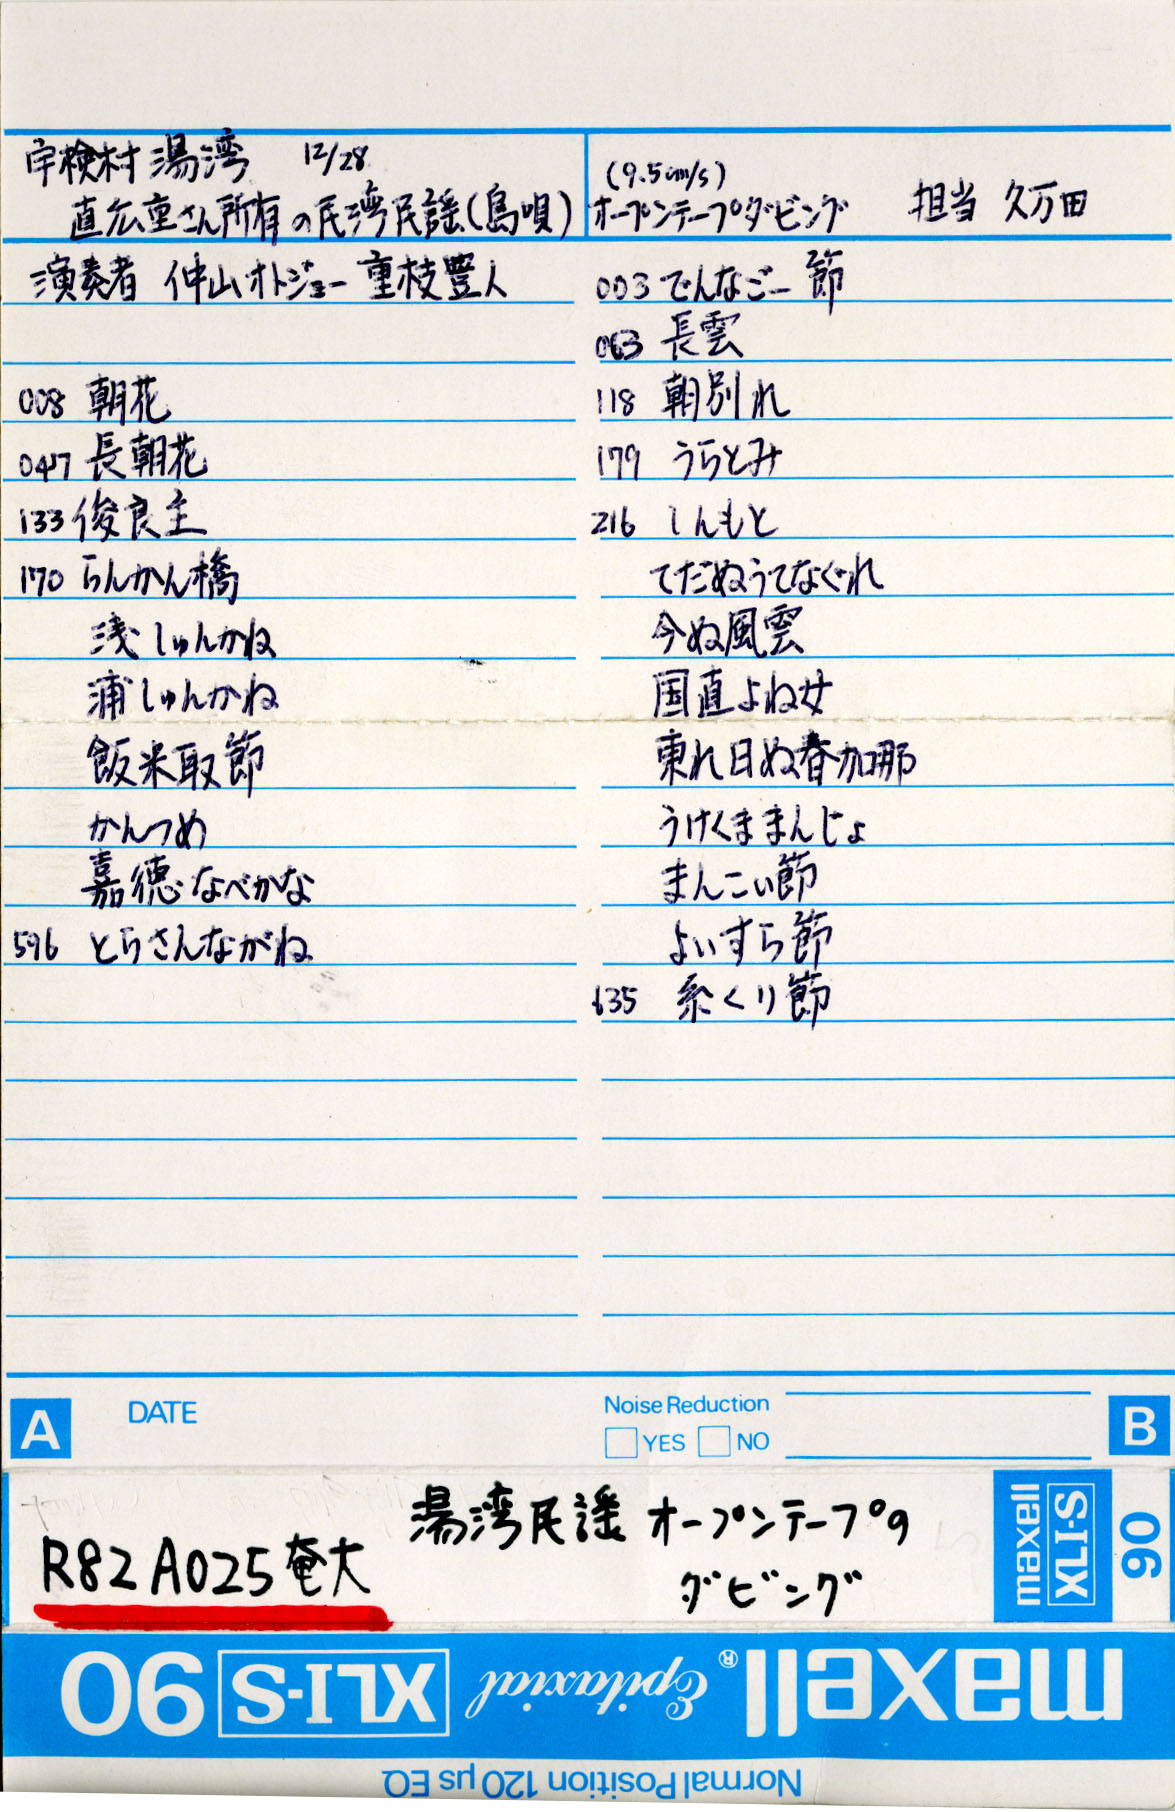 宇検村 湯湾 12/28
直広重さん所有の民湾民謡(島唄)
(9.5cm/s)
オープンテープダビング 担当 久万田
演奏者 仲山オトジョー 重枝豊人
008 朝花
047 長朝花
133 俊良主
170 らんかん橋
浅しゅんかね
浦しゅんかね
飯米取節
かんつめ
嘉徳なべかな
596 とらさんながね
003 でんなご一節
063 長雲
118 朝別れ
179 うらとみ
216 しんもと
てだぬうてなぐれ
今ぬ風雲
国直よね女
東れ日ぬ春加那
うけくままんじょ
まんこい節
よいすら節
635 糸くり節
A DATE
Noise Reduction
YES NO
B
湯湾民謡 オープンテープの
ダビング
R82 A025 奄大
maxell
XLI-S
90
maxell® Epitaxial XLI-S 90
Normal Position 120 μs EQ